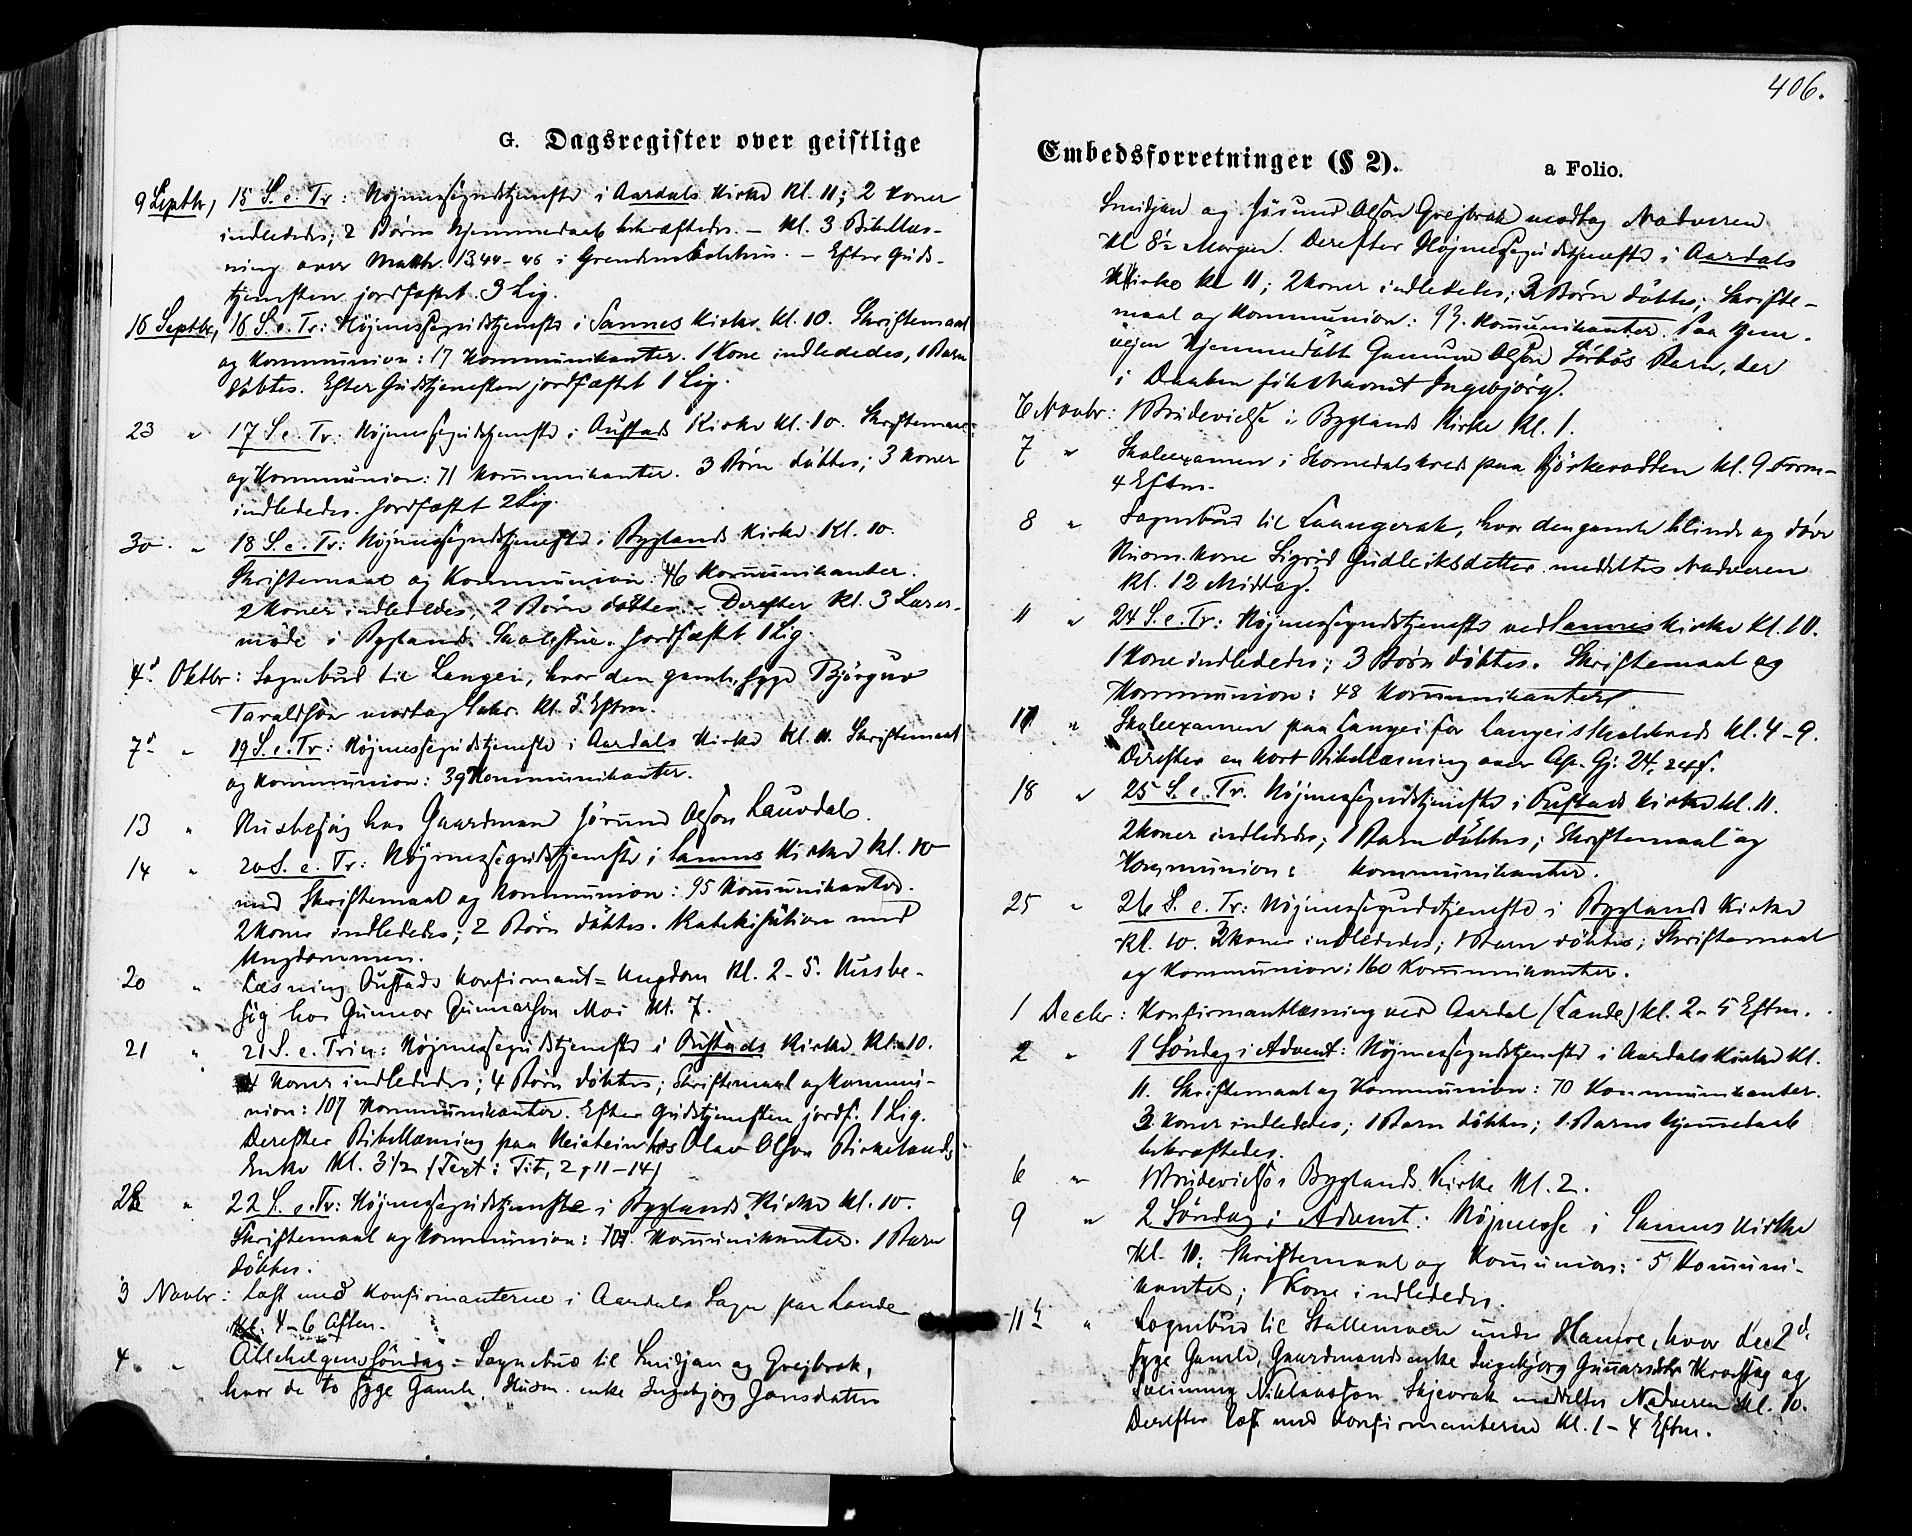 406.
G. Dagsregister over geistlige
Embedsforretninger (§ 2).
a Folio.
9 Septbr, 15 S. e. Tr: Højmessegudstjeneste i Aardals Kirke Kl. 11; 2 Koner
indlededes; 2 Børn hjemmedaab bekræftedes. – Kl. 3 Bibellæs-
ning over Matth. 13,44-46 i . – Efter Guds-
tjenesten jordfæstet 3 Lig.
16 Septbr, 16 S. e. Tr: Højmessegudstjeneste i Sannes Kirke Kl. 10. Skriftemaal
og Kommunion: 17 Kommunikanter. 1 Kone indlededes, 1 Barn
döbtes. Efter Gudstjenesten jordfæstet 1 Lig.
23 " 17 S. e. Tr: Højmessegudstjeneste i Austads Kirke Kl. 10. Skriftemaal
og Kommunion: 71 Kommunikanter. 3 Børn döbtes; 3 Koner
indlededes. Jordfæstet 2 Lig.
30 " 18 S. e. Tr: Højmessegudstjeneste i Byglands Kirke Kl. 10.
Skriftemaal og Kommunion: 46 Kommunikanter.
2 Koner indlededes, 2 Börn döbtes. – Derefter Kl. 3 Lærer-
möde i Byglands Skolestue. Jordfæstet 1 Lig.
4de Oktbr: Sognebud til Langei, hvor den gamle, syge Björguv
Taraldsön modtog Sakr. Kl. 5 Eftm.
7de " 19 S. e. Tr: Højmessegudstjeneste i Aardals Kirke Kl. 11. Skriftemaal
og Kommunion: 39 Kommunikanter.
13 " Husbesög hos Gaardmand Jörund Olsön Lauvdal.
14 " 20 S. e. Tr: Højmessegudstjeneste i Sannes Kirke Kl. 10
med Skriftemaal og Kommunion: 95 Kommunikanter.
2 Koner indlededes; 2 Börn döbtes. Katekisation med
Ungdommen.
20 " Læsning Austads Konfirmant= Ungdom Kl. 2-5. Husbe-
sög hos Gunnar Gunnarsön Moi Kl. 7.
21 " 21 S. e. Trin: Højmessegudstjeneste i Austads Kirke Kl. 10.
4 Koner indlededes; 4 Börn döbtes; Skriftemaal og Kommu-
nion: 107 Kommunikanter. Efter Gudstjenesten jordf. 1 Lig.
Derefter Bibellæsning paa hos Olav Olsön Birkelands
Enke Kl. 3 1/2 (Text: Tit, 2, 11-14)
28 " 22 S. e. Tr: Højmessegudstjeneste i Byglands Kirke Kl. 10.
Skriftemaal og Kommunion: Kommunikanter. 1 Barn
döbtes.
3 Novbr: Læst med Konfirmanterne i Aardals Sogn paa Lande
Kl. 4-6 Aften.
4 " Allehelgens Söndag = Sognebud til Smidjan og Grejbrok,
hvor de to syge Gamle, Husm. enke Ingebjørg Jonsdatter
Smidjan og Jösund Olsön Grejbrok modtog Nadveren
Kl 8½ Morgen. Derefter Højmessegudstjeneste i Aardals
Kirke Kl 11; 2 Koner indlededes; 3 Børn döbtes; Skrifte-
maal og Kommunion: 93 Kommunikanter. Paa Hjem-
vejen hjemmedöbt Gunnar Olsön Barn, der
i Daaben fik Navnet Ingebjörg.
6 Novbr: 1 Brudevielse i Byglands Kirke Kl. 1.
7 " Skoleexamen i paa Kl. 9 Form-
4 Eftm.
8 " Sognebud til Laangerak, hvor den gamle blinde og döve
Husm. Kone Sigrid Gudleiksdatter meddeltes Nadveren
Kl. 12 Middag.
11 " 24 S. e. Tr: Højmessegudstjeneste ved Sannes Kirke Kl. 10.
1 Kone indlededes; 3 Börn döbtes. Skriftemaal og
Kommunion: 48 Kommunikanter.
17 " Skoleexamen paa Langei for Langeis Skolekreds Kl. 4-9.
Derefter en kort Bibellæsning over Ap. Gj. 24, 24 f.
18 " 25 S. e. Tr. Højmessegudstjeneste i Austads Kirke Kl. 11.
2 Koner indlededes; 1 Barn döbtes; Skriftemaal og
Kommunion: Kommunikanter.
25 " 26 S. e. Tr: Højmessegudstjeneste i Byglands Kirke
Kl. 10. 3 Koner indlededes; 1 Barn döbtes; Skriftemaal
og Kommunion: 160 Kommunikanter.
1 Decbr: Konfirmantlæsning ved Aardal (Lande) Kl. 2-5 Eftm.
2 " 1 Söndag i Advent: Højmessegudstjeneste i Aardals Kirke Kl.
11. Skriftemaal og Kommunion: 70 Kommunikanter.
3 Koner indlededes; 1 Barn döbtes; 1 Barns hjemmedaab
bekræftedes.
6 " 1 Brudevielse i Byglands Kirke Kl. 2.
9 " 2 Söndag i Advent: Højmesse i Sannes Kirke
Kl. 10; Skriftemaal og Kommunion: 5 Kommuni-
kanter; 1 Kone indlededes.
11te " Sognebud til Stallemoen under Hamre, hvor de 2de
syge Gamle, Gaardmandsenke Ingebjörg Gunnarsdtr og
Sveinung Niklausson Skjevrak meddeltes Nadveren Kl. 10.
Derefter læst med Konfirmanterne Kl. 1-4 Eftm.